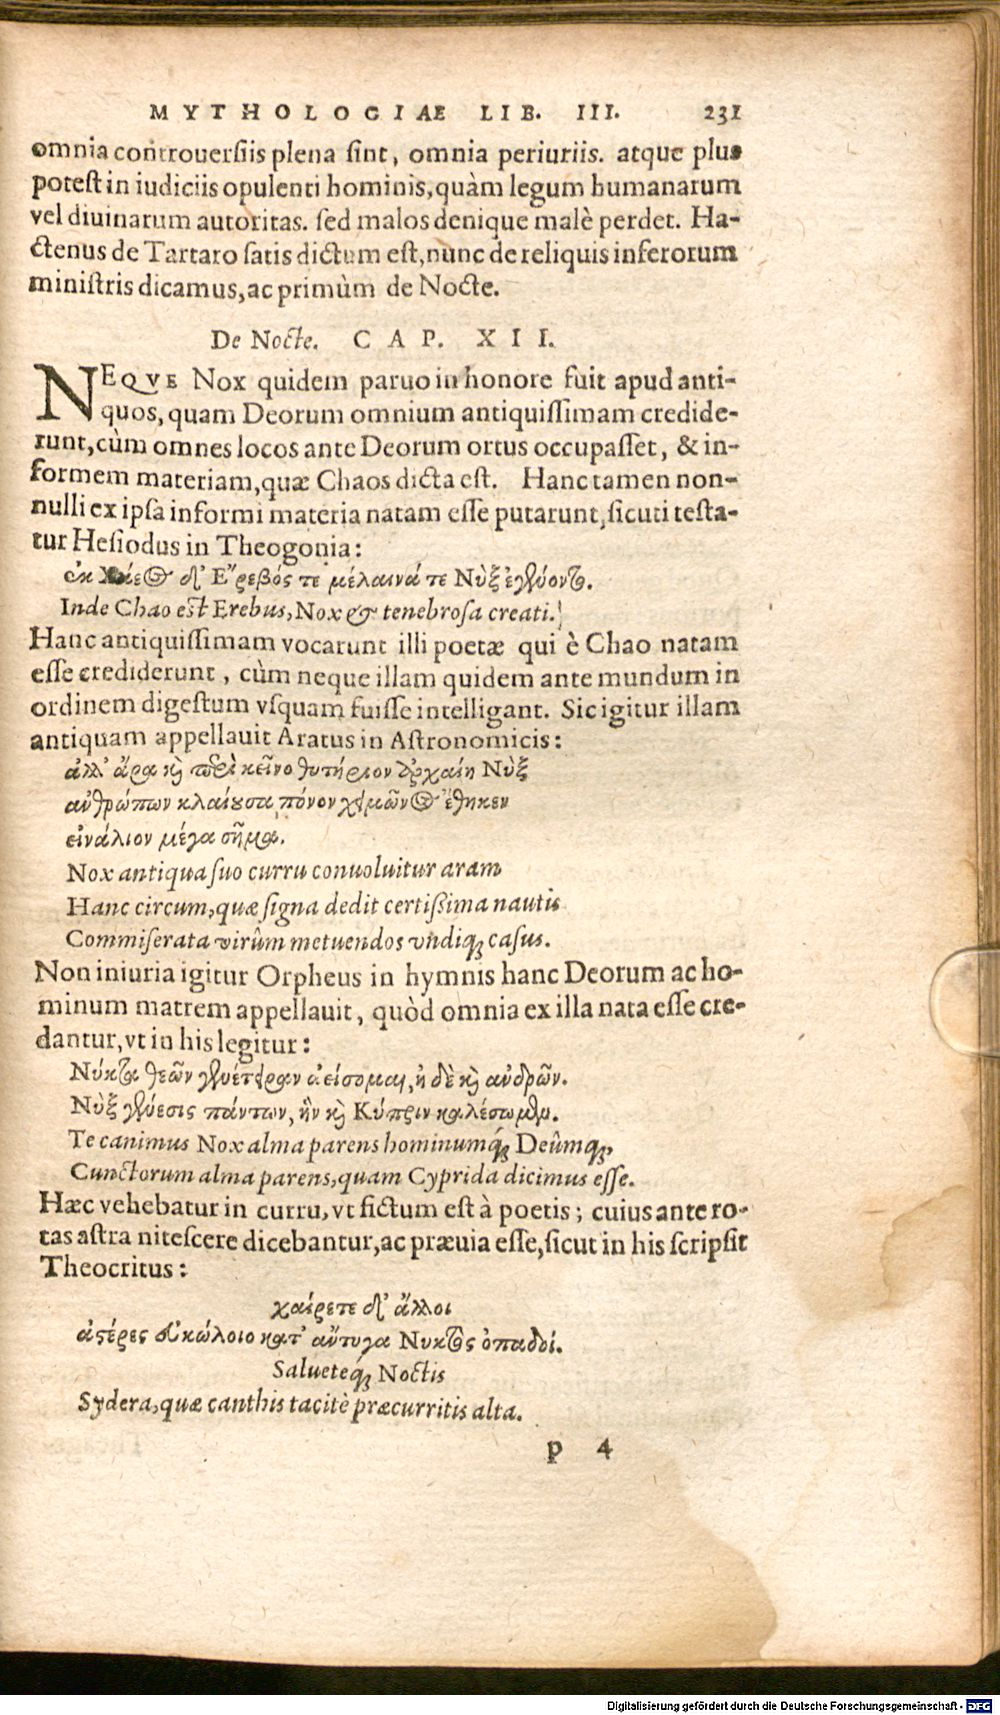 MYTHOLOGIAE LIB. III. 231
omnia controuersiis plena sint, omnia periuriis. atque plus
potest in iudiciis opulenti hominis, quàm legum humanarum
vel diuinarum autoritas. sed malos denique malè perdet. Ha-
ctenus de Tartaro satis dictum est, nunc de reliquis inferorum
ministris dicamus, ac primùm de Nocte.
De Nocte. CAP. XII.
NEQVE Nox quidem paruo in honore fuit apud anti-
quos, quam Deorum omnium antiquissimam credide-
runt, cùm omnes locos ante Deorum ortus occupasset, & in-
formem materiam, quæ Chaos dicta est. Hanc tamen non-
nulli ex ipsa informi materia natam esse putarunt, sicuti testa-
tur Hesiodus in Theogonia:
ἐκ Χάεος δ' Ἔρεβός τε μέλαινά τε Νὺξ ἐγένοντο.
Inde Chao est Erebus, Nox & tenebrosa creati.
Hanc antiquissimam vocarunt illi poetæ qui è Chao natam
esse crediderunt, cùm neque illam quidem ante mundum in
ordinem digestum vsquam fuisse intelligant. Sic igitur illam
antiquam appellauit Aratus in Astronomicis:
ἀλλ' ἄρα καὶ περὶ κεῖνο θυτήριον ἀρχαίη Νὺξ
ἀνθρώπων κλαίουσα πόνον χειμῶνος ἔθηκεν
εἰνάλιον μέγα σῆμα.
Nox antiqua suo curru conuoluitur aram
Hanc circum, quæ signa dedit certissima nautis
Commiserata virûm metuendos vndiq; casus.
Non iniuria igitur Orpheus in hymnis hanc Deorum ac ho-
minum matrem appellauit, quòd omnia ex illa nata esse cre-
dantur, vt in his legitur:
Νύκτα θεῶν γενέτειραν ἀείσομαι, ἠ δὲ καὶ ἀνδρῶν.
Νὺξ γένεσις πάντων, ἣν καὶ Κύπριν καλέσωμεν.
Te canimus Nox alma parens hominumq́; Deûmq́;,
Cunctorum alma parens, quam Cyprida dicimus esse.
Hæc vehebatur in curru, vt fictum est à poetis; cuius ante ro-
tas astra nitescere dicebantur, ac præuia esse, sicut in his scripsit
Theocritus:
χαίρετε δ' ἄλλοι
ἀστέρες εὐκώλοιο κατ' ἄντυγα Νυκτὸς ὀπαδοί.
Salueteq́; Noctis
Sydera, quæ canthis tacitè præcurritis alta.
p 4
Digitalisierung gefördert durch die Deutsche Forschungsgemeinschaft - DFG